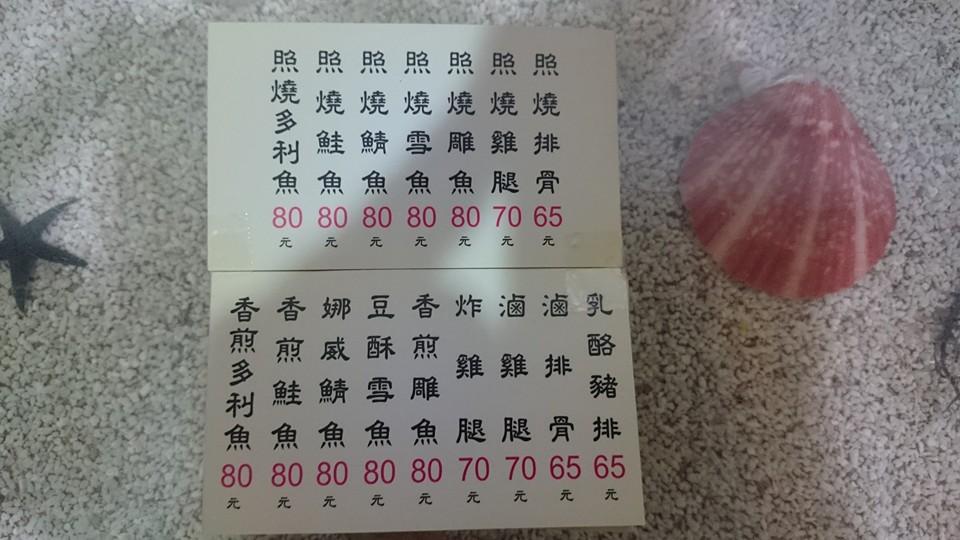 照燒排骨65元
照燒雞腿70元
照燒雕魚80元
照燒雪魚80元
照燒鯖魚80元
照燒鮭魚80元
照燒多利魚80元
乳酪豬排65元
滷排骨65元
滷雞腿70元
炸雞腿70元
香煎雕魚80元
豆酥雪魚80元
娜威鯖魚80元
香煎鮭魚80元
香煎多利魚80元